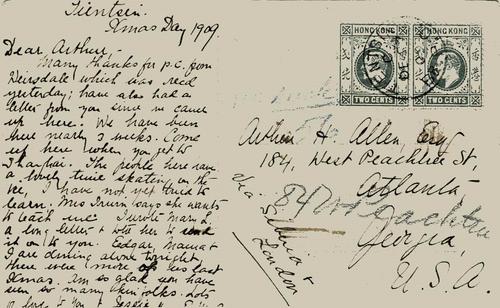 Tientsin.
Xmas Day 1909.
Dear Arthur,-
Many thanks for p.c. from
Hinsdale which was rec'd
yesterday; have also had a
letter from you since we came
up here. We have been
here nearly 3 weeks. Come
up here when you get to
Shanghai. The people here have
a lovely time skating on the
ice, I have not yet tried to
learn. Mrs Irwin says she wants
to teach me. I wrote Mama
a long letter & told her to send
it on to you. Edgar, Mama &
I are dining alone tonight,
there were more of us last
Xmas. Am so glad you have
seen so many kin folks. Lots
of love to you & Jessie &
HONG KONG
TWO CENTS
HONG KONG
TWO CENTS
Arthur H. Allen, Esq
184, West Peachtree St,
Atlanta,
84 West Peachtree
Georgia,
U.S.A.
Via Siberia &
London